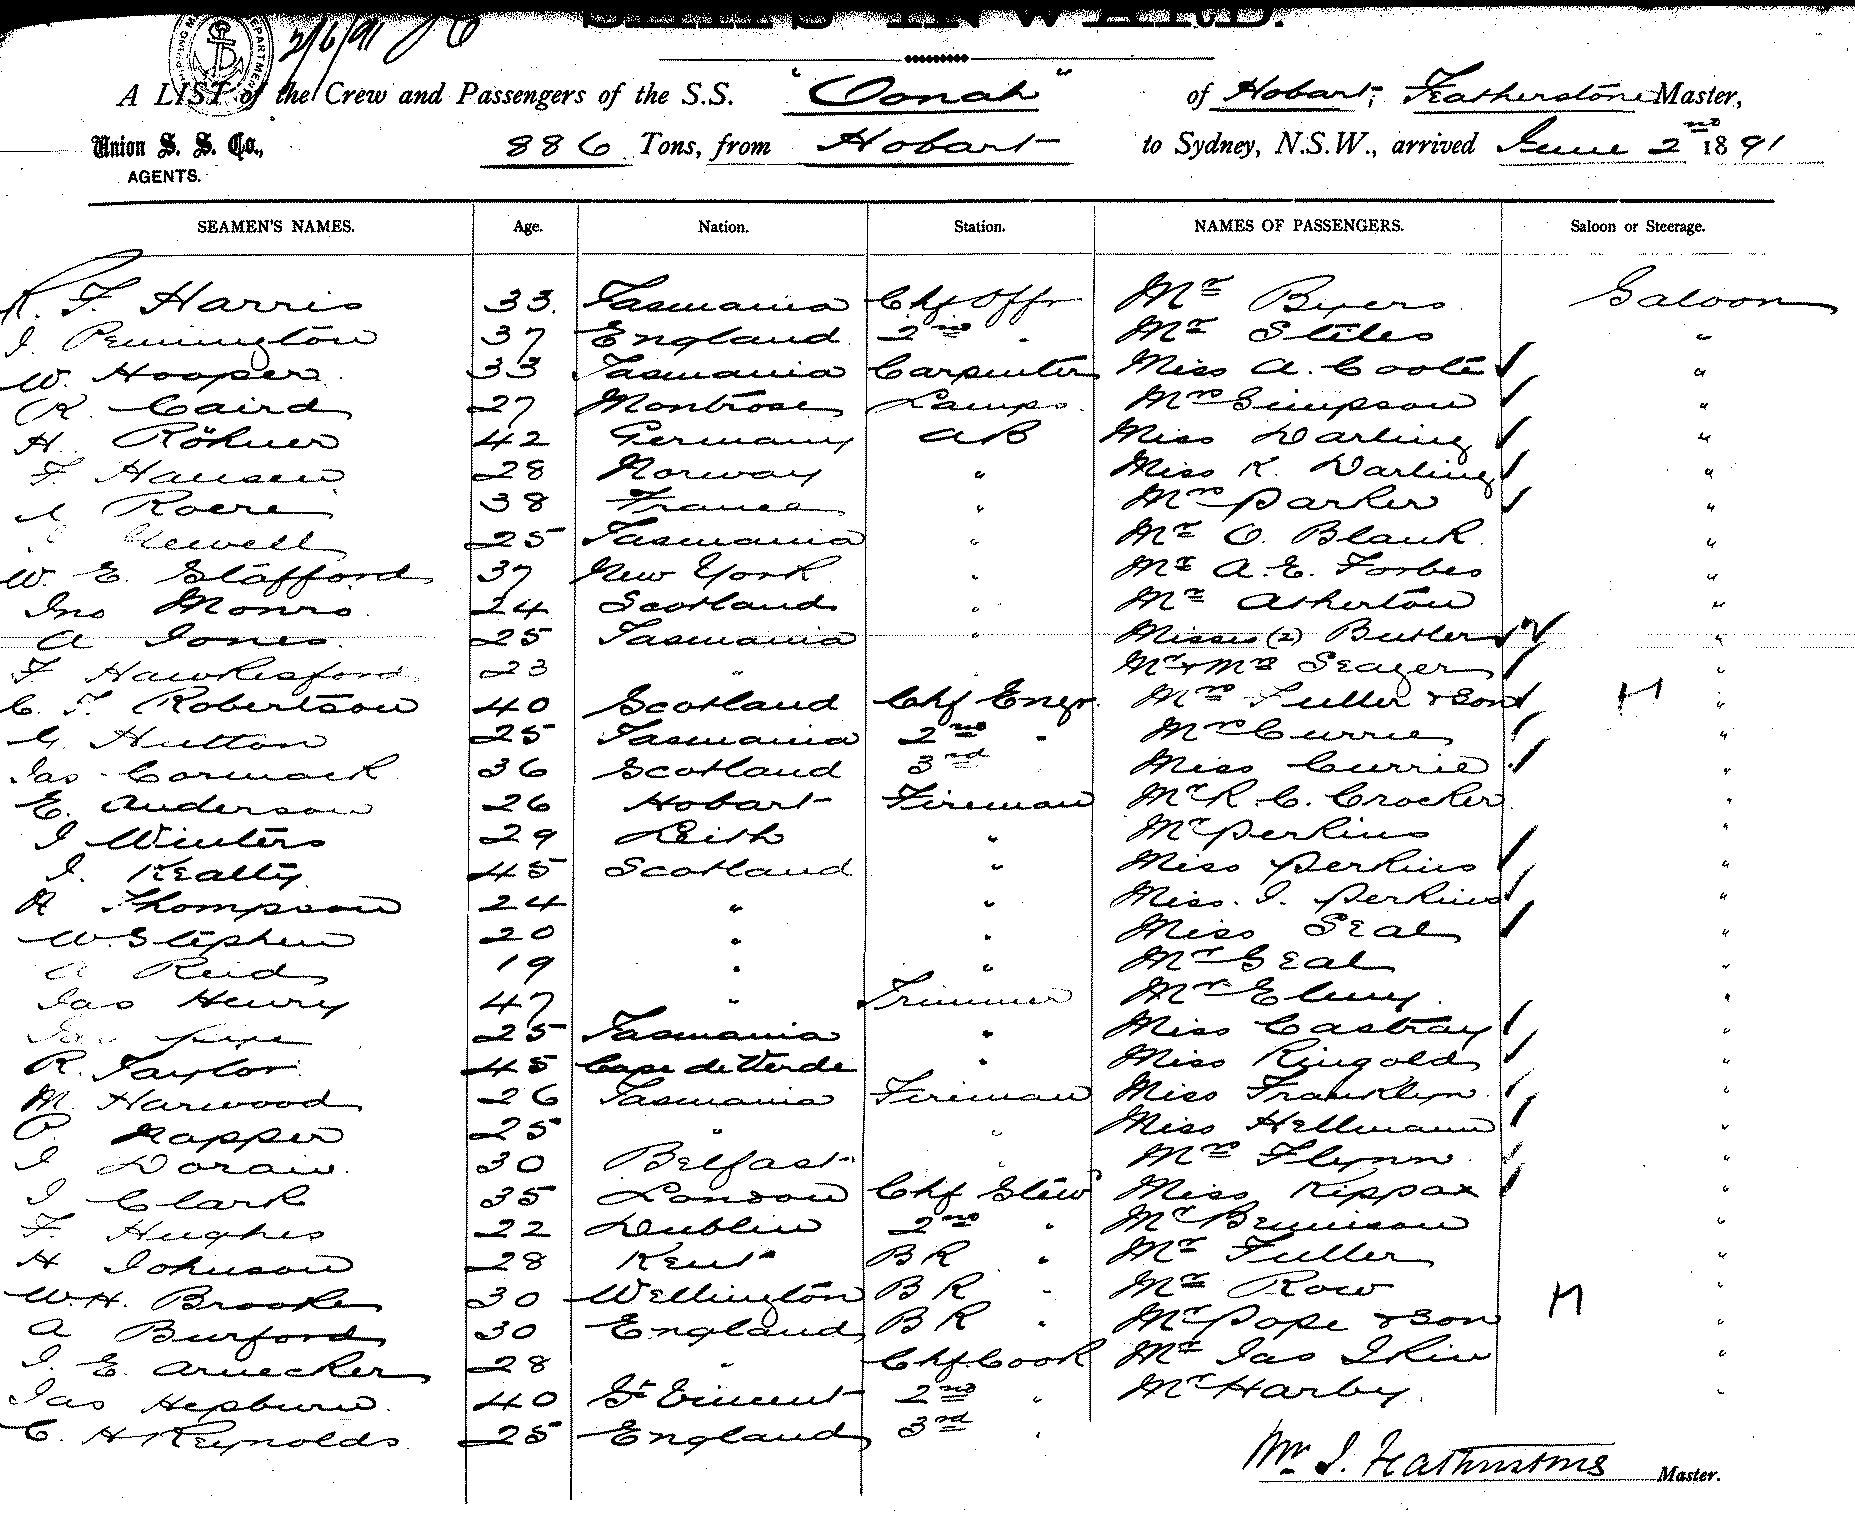 SHIPS INWARD.
2/6/91
A LIST of the Crew and Passengers of the S.S. "Oonah" of Hobart, Featherstone Master,
Union S. S. Co., 886 Tons, from Hobart to Sydney, N.S.W., arrived June 2nd 1891
AGENTS.
SEAMEN'S NAMES. Age. Nation. Station. NAMES OF PASSENGERS. Saloon or Steerage.
R. F. Harris 33. Tasmania Chf Offr Mr Byers Saloon
J. Pennington 37 England 2nd " Mr Stiles "
W. Hooper 33 Tasmania Carpenter Miss A. Coote "
R. Caird 27 Montrose Lamps Mrs Simpson "
H. Röhner 42 Germany AB Miss Darling "
F Hansen 28 Norway " Miss K. Darling "
Roere 38 France " Mrs Parker "
Newell 25 Tasmania " Mr O. Blank "
W. E. Stafford 37 New York " Mr A. E. Forbes "
Jno Monro 24 Scotland " Mr Atherton "
A Jones 25 Tasmania " Misses (2) Butler "
F Hawkesford 23 " Mr & Mrs Seager "
C. T. Robertson 40 Scotland Chf Engr Mrs Fuller & Son "
G. Hutton 25 Tasmania 2nd " Mrs Currie "
Jas Cormack 36 Scotland 3rd Miss Currie "
E. Anderson 26 Hobart Fireman Mr R C. Crocker "
J Winters 29 Leith " Mr Perkins "
J. Kealty 45 Scotland " Miss Perkins "
A Thompson 24 " " Miss. I. Perkins "
W. Stephen 20 " " Miss Seal "
A Reid 19 " " Mr Seal "
Jas Henry 47 " Trimmer Mr "
Jas Pipe 25 Tasmania " Miss Castray "
R. Taylor 45 Cape de Verde " Miss Ringold "
M. Harwood 26 Tasmania Fireman Miss Franklyn "
P. Napper 25 " " Miss Hellmann "
J Doran 30 Belfast " Mrs Flynn "
J Clark 35 London Chf Stew Miss Kippax "
F. Hughes 22 Dublin 2nd " Mr Bennison "
H Johnson 28 Kent BR " Mr Fuller "
W. H. Brooke 30 Wellington BR " Mr Row "
A Burford 30 England BR " Mr Pope & Son "
J. E. Aruecker 28 " Chf Cook Mr Jas Skin "
Jas Hepburn 40 St Vincent 2nd " Mr Harby "
C. H Reynolds 25 England 3rd "
Wm J. Featherstone Master.